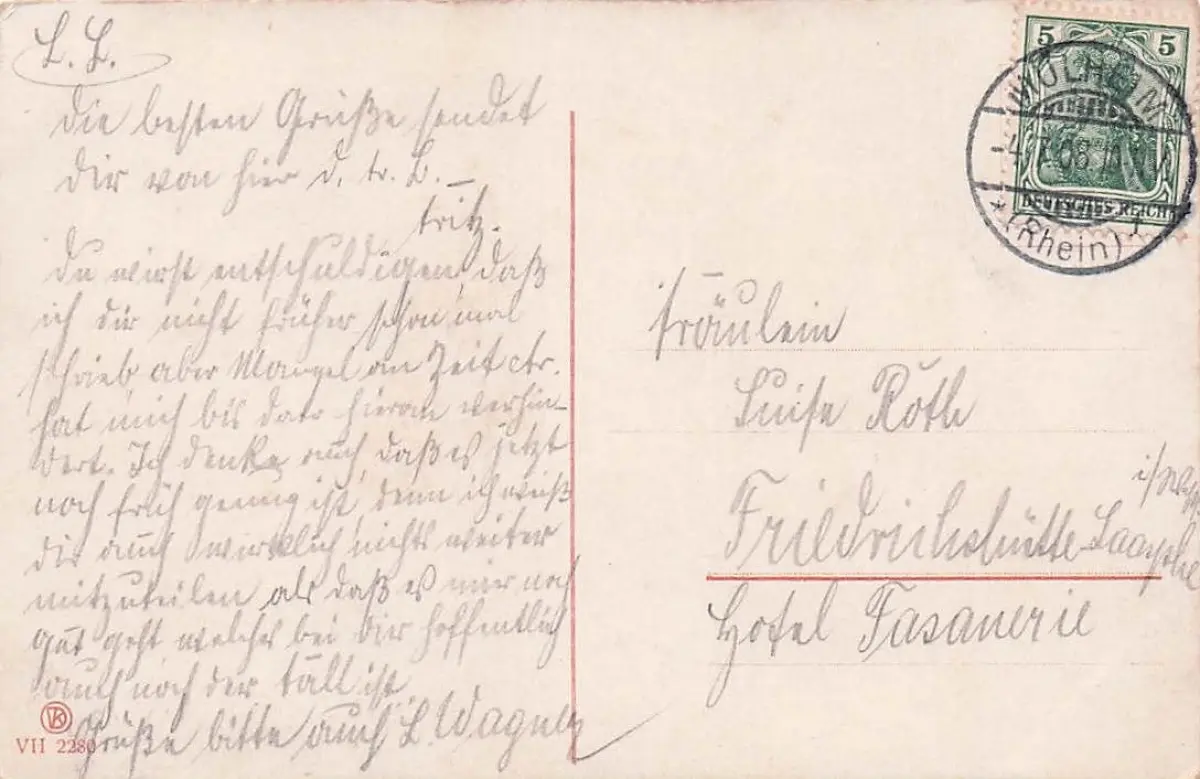 L. L.
die besten Grüße sendet
dir von hier d. tr. L. —
Fritz.
Du wirst entschuldigen, daß
ich dir nicht früher schon mal
schrieb aber Mangel an Zeit etr.
hat mich bis dato hieran verhin-
dert. Ich denke auch, daß es jetzt
noch früh genug ist, denn ich weiß
dir auch wirklich nichts weiter
mitzuteilen als daß es mir noch
gut geht welches bei dir hoffentlich
auch noch der Fall ist
Grüße bitte auch L. Wagner
VII 2280
5 5
MÜLHEIM
(Rhein) 1
DEUTSCHES REICH
Fräulein
Luise Roth
Friedrichshütte-Laasphe
i/W
Hotel Fasanerie